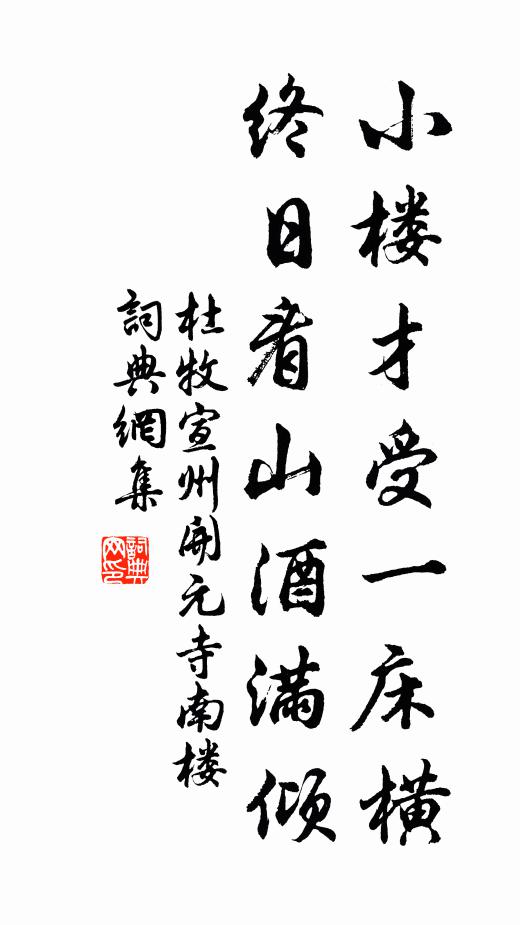 小楼才受一床横
终日看山酒满倾
杜牧宣州開元寺南楼
詞典網集
詞典
网印